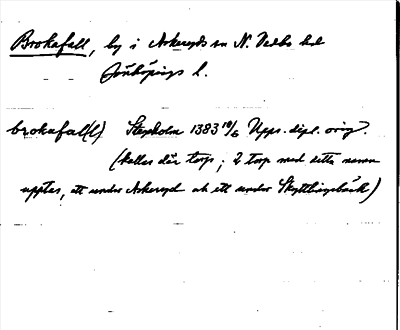 Brokafall, by i Askeryds sn N. Vedbo hd
Jönköpings l.
brokafal(l) Stegholm 1383 10/6 Upps. dipl. orig.
(kallas där torp; 2 torp med detta namn
upptas, ett under Askeryd och ett under Skyttlingebäck)